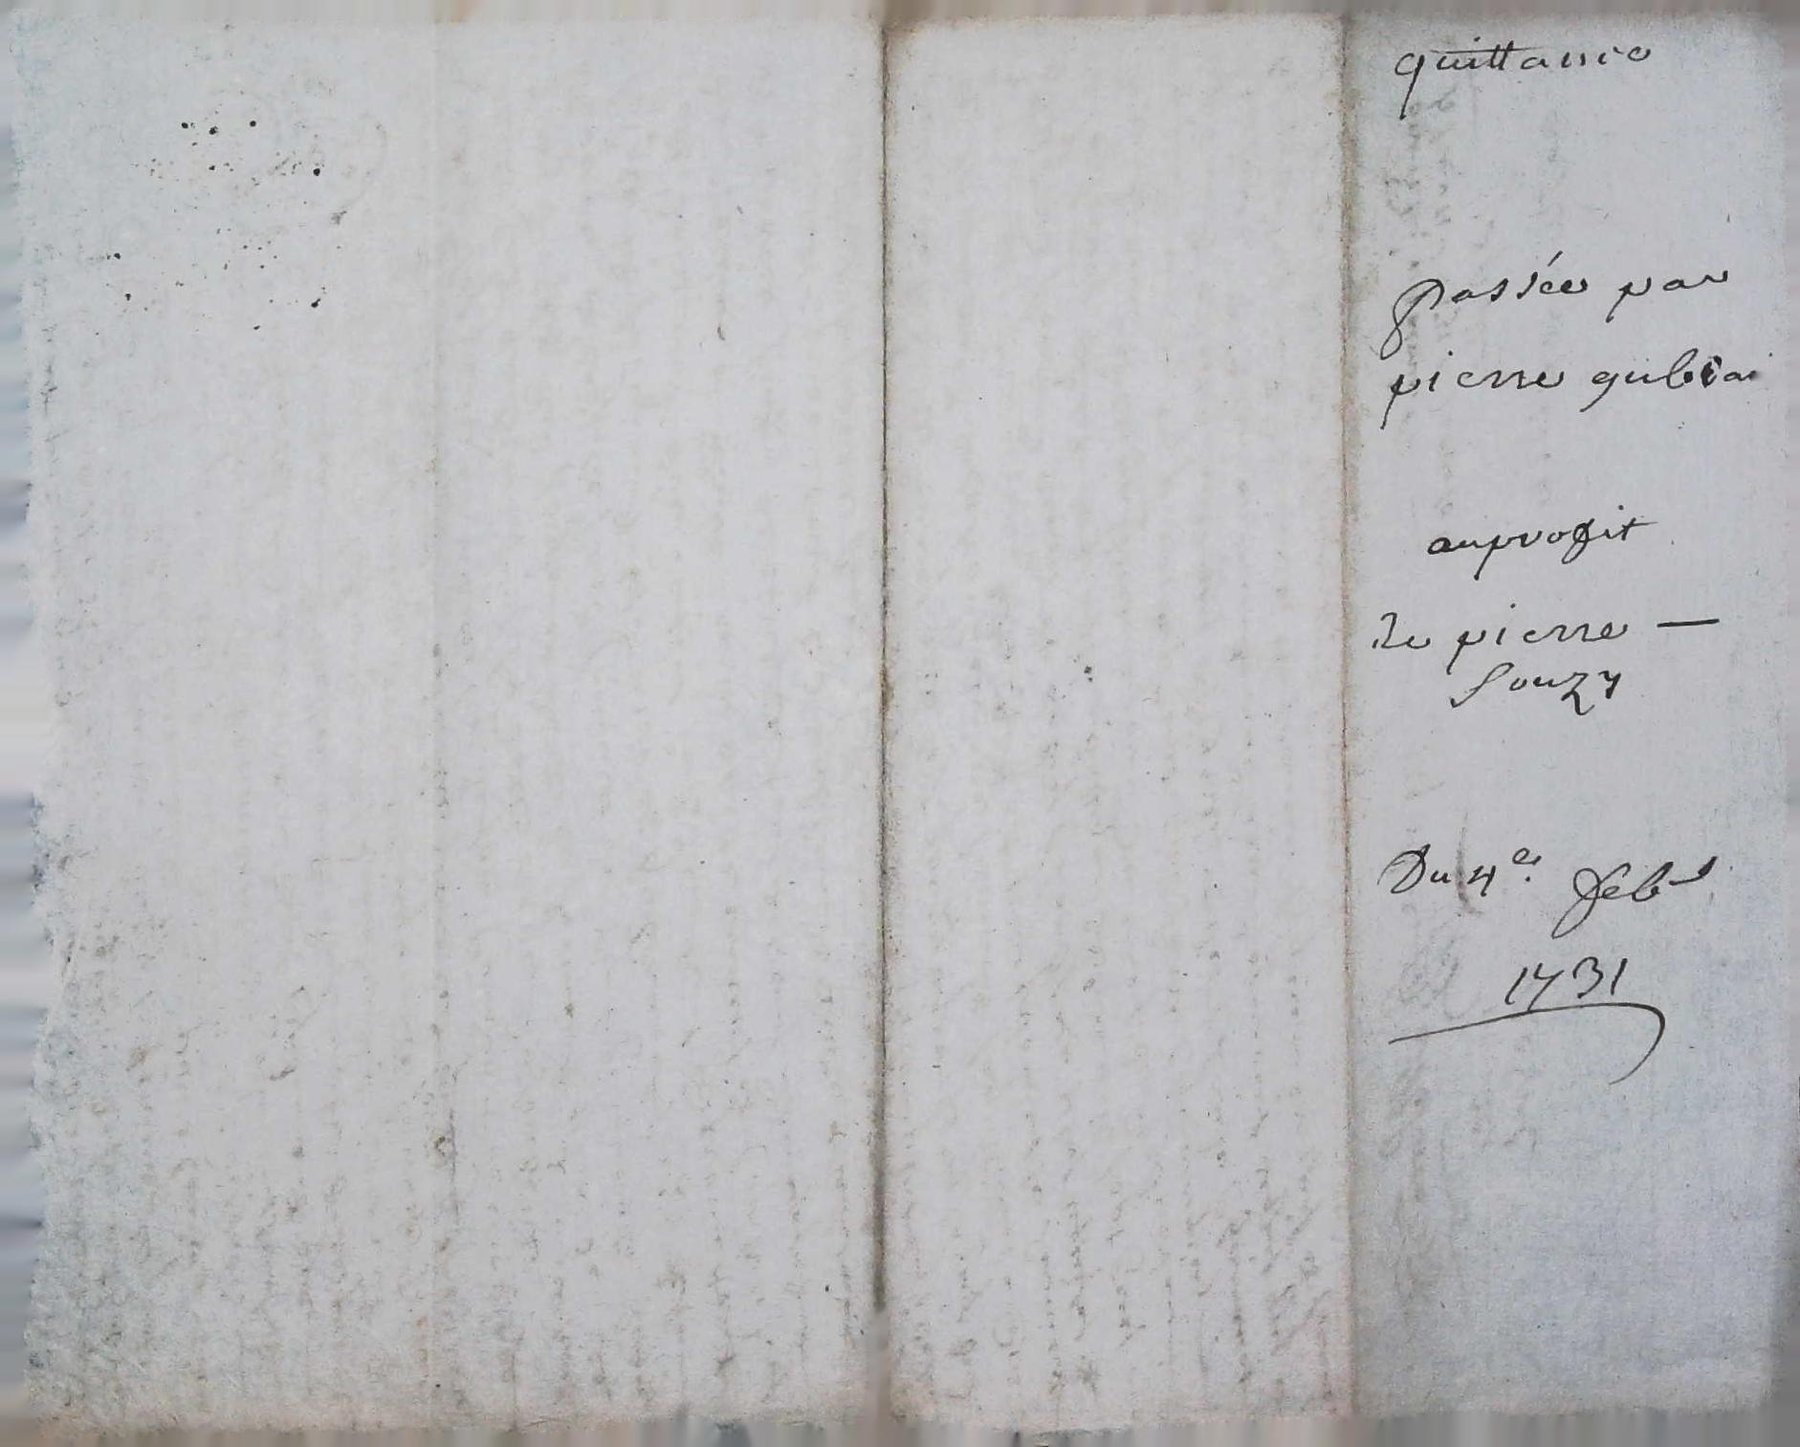 quittance
passée par
pierre gubiai
au profit
de pierre —
Souzy
Du 4e. febr
1731